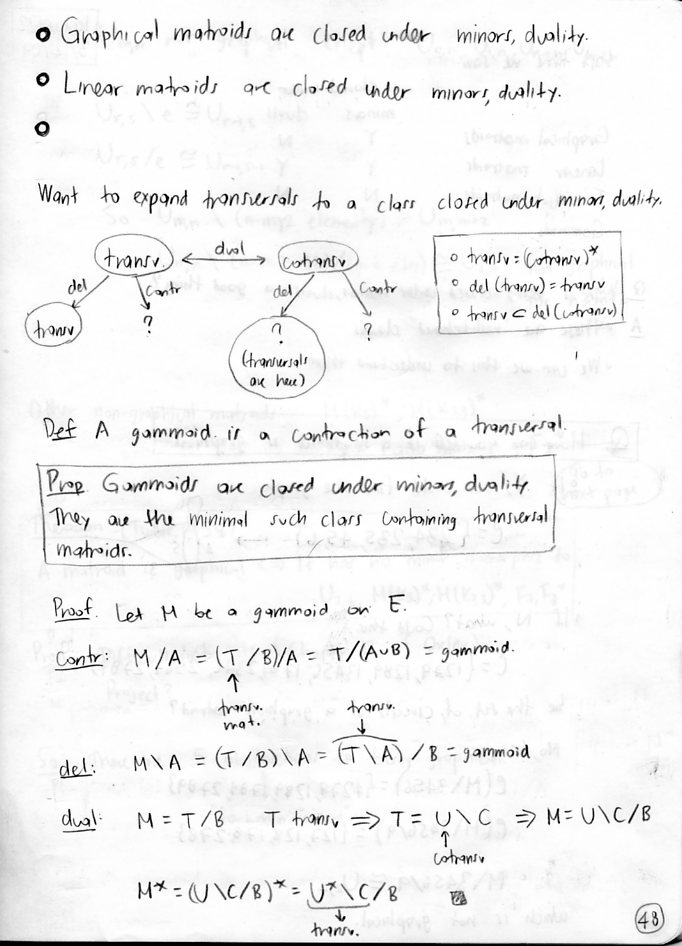 o Graphical matroids are closed under minors, duality.
o Linear matroids are closed under minors, duality.
o
Want to expand transversals to a class closed under minor, duality.
transv. dual cotransv
del contr del contr
transv ? ? ?
(transversals
are here)
o transv = (cotransv)*
o del (transv) = transv
o transv ⊂ del (cotransv)
Def A gammoid is a contraction of a transversal.
Prop Gammoids are closed under minors, duality
They are the minimal such class containing transversal
matroids.
Proof. Let M be a gammoid on E.
Contr: M/A = (T/B)/A = T/(A∪B) = gammoid.
↑
transv.
mat.
transv.
↓
del: M\A = (T/B)\A = (T\A)/B = gammoid
dual: M = T/B T transv ⇒ T = U\C ⇒ M = U\C/B
↑
cotransv
M* = (U\C/B)* = U*\C/B
↓
transv.
48